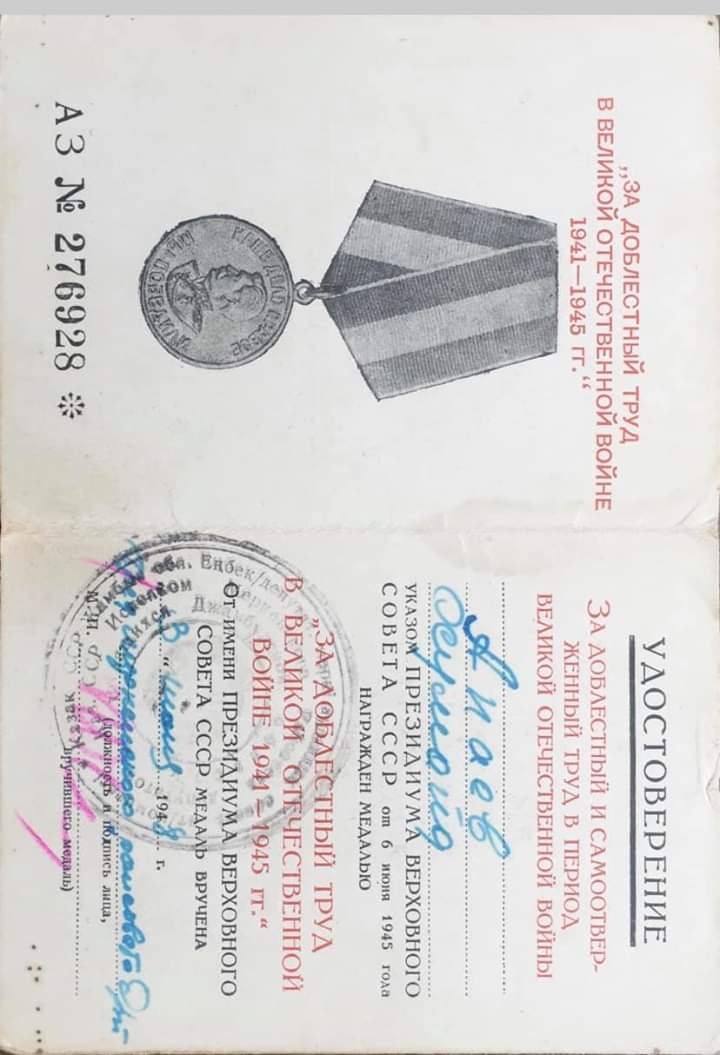 „ЗА ДОБЛЕСТНЫЙ ТРУД
В ВЕЛИКОЙ ОТЕЧЕСТВЕННОЙ ВОЙНЕ
1941—1945 гг.“
НАШЕ ДЕЛО ПРАВОЕ
МЫ ПОБЕДИЛИ
АЗ № 276928
УДОСТОВЕРЕНИЕ
ЗА ДОБЛЕСТНЫЙ И САМООТВЕР-
ЖЕННЫЙ ТРУД В ПЕРИОД
ВЕЛИКОЙ ОТЕЧЕСТВЕННОЙ ВОЙНЫ
Апаев
УКАЗОМ ПРЕЗИДИУМА ВЕРХОВНОГО
СОВЕТА СССР от 6 июня 1945 года
НАГРАЖДЕН МЕДАЛЬЮ
„ЗА ДОБЛЕСТНЫЙ ТРУД
В ВЕЛИКОЙ ОТЕЧЕСТВЕННОЙ
ВОЙНЕ 1941—1945 гг.“
От ИМЕНИ ПРЕЗИДИУМА ВЕРХОВНОГО
СОВЕТА СССР МЕДАЛЬ ВРУЧЕНА
июня 1948 г.
М. П.
(должность и подпись лица,
вручившего медаль)
обл. Еңбек